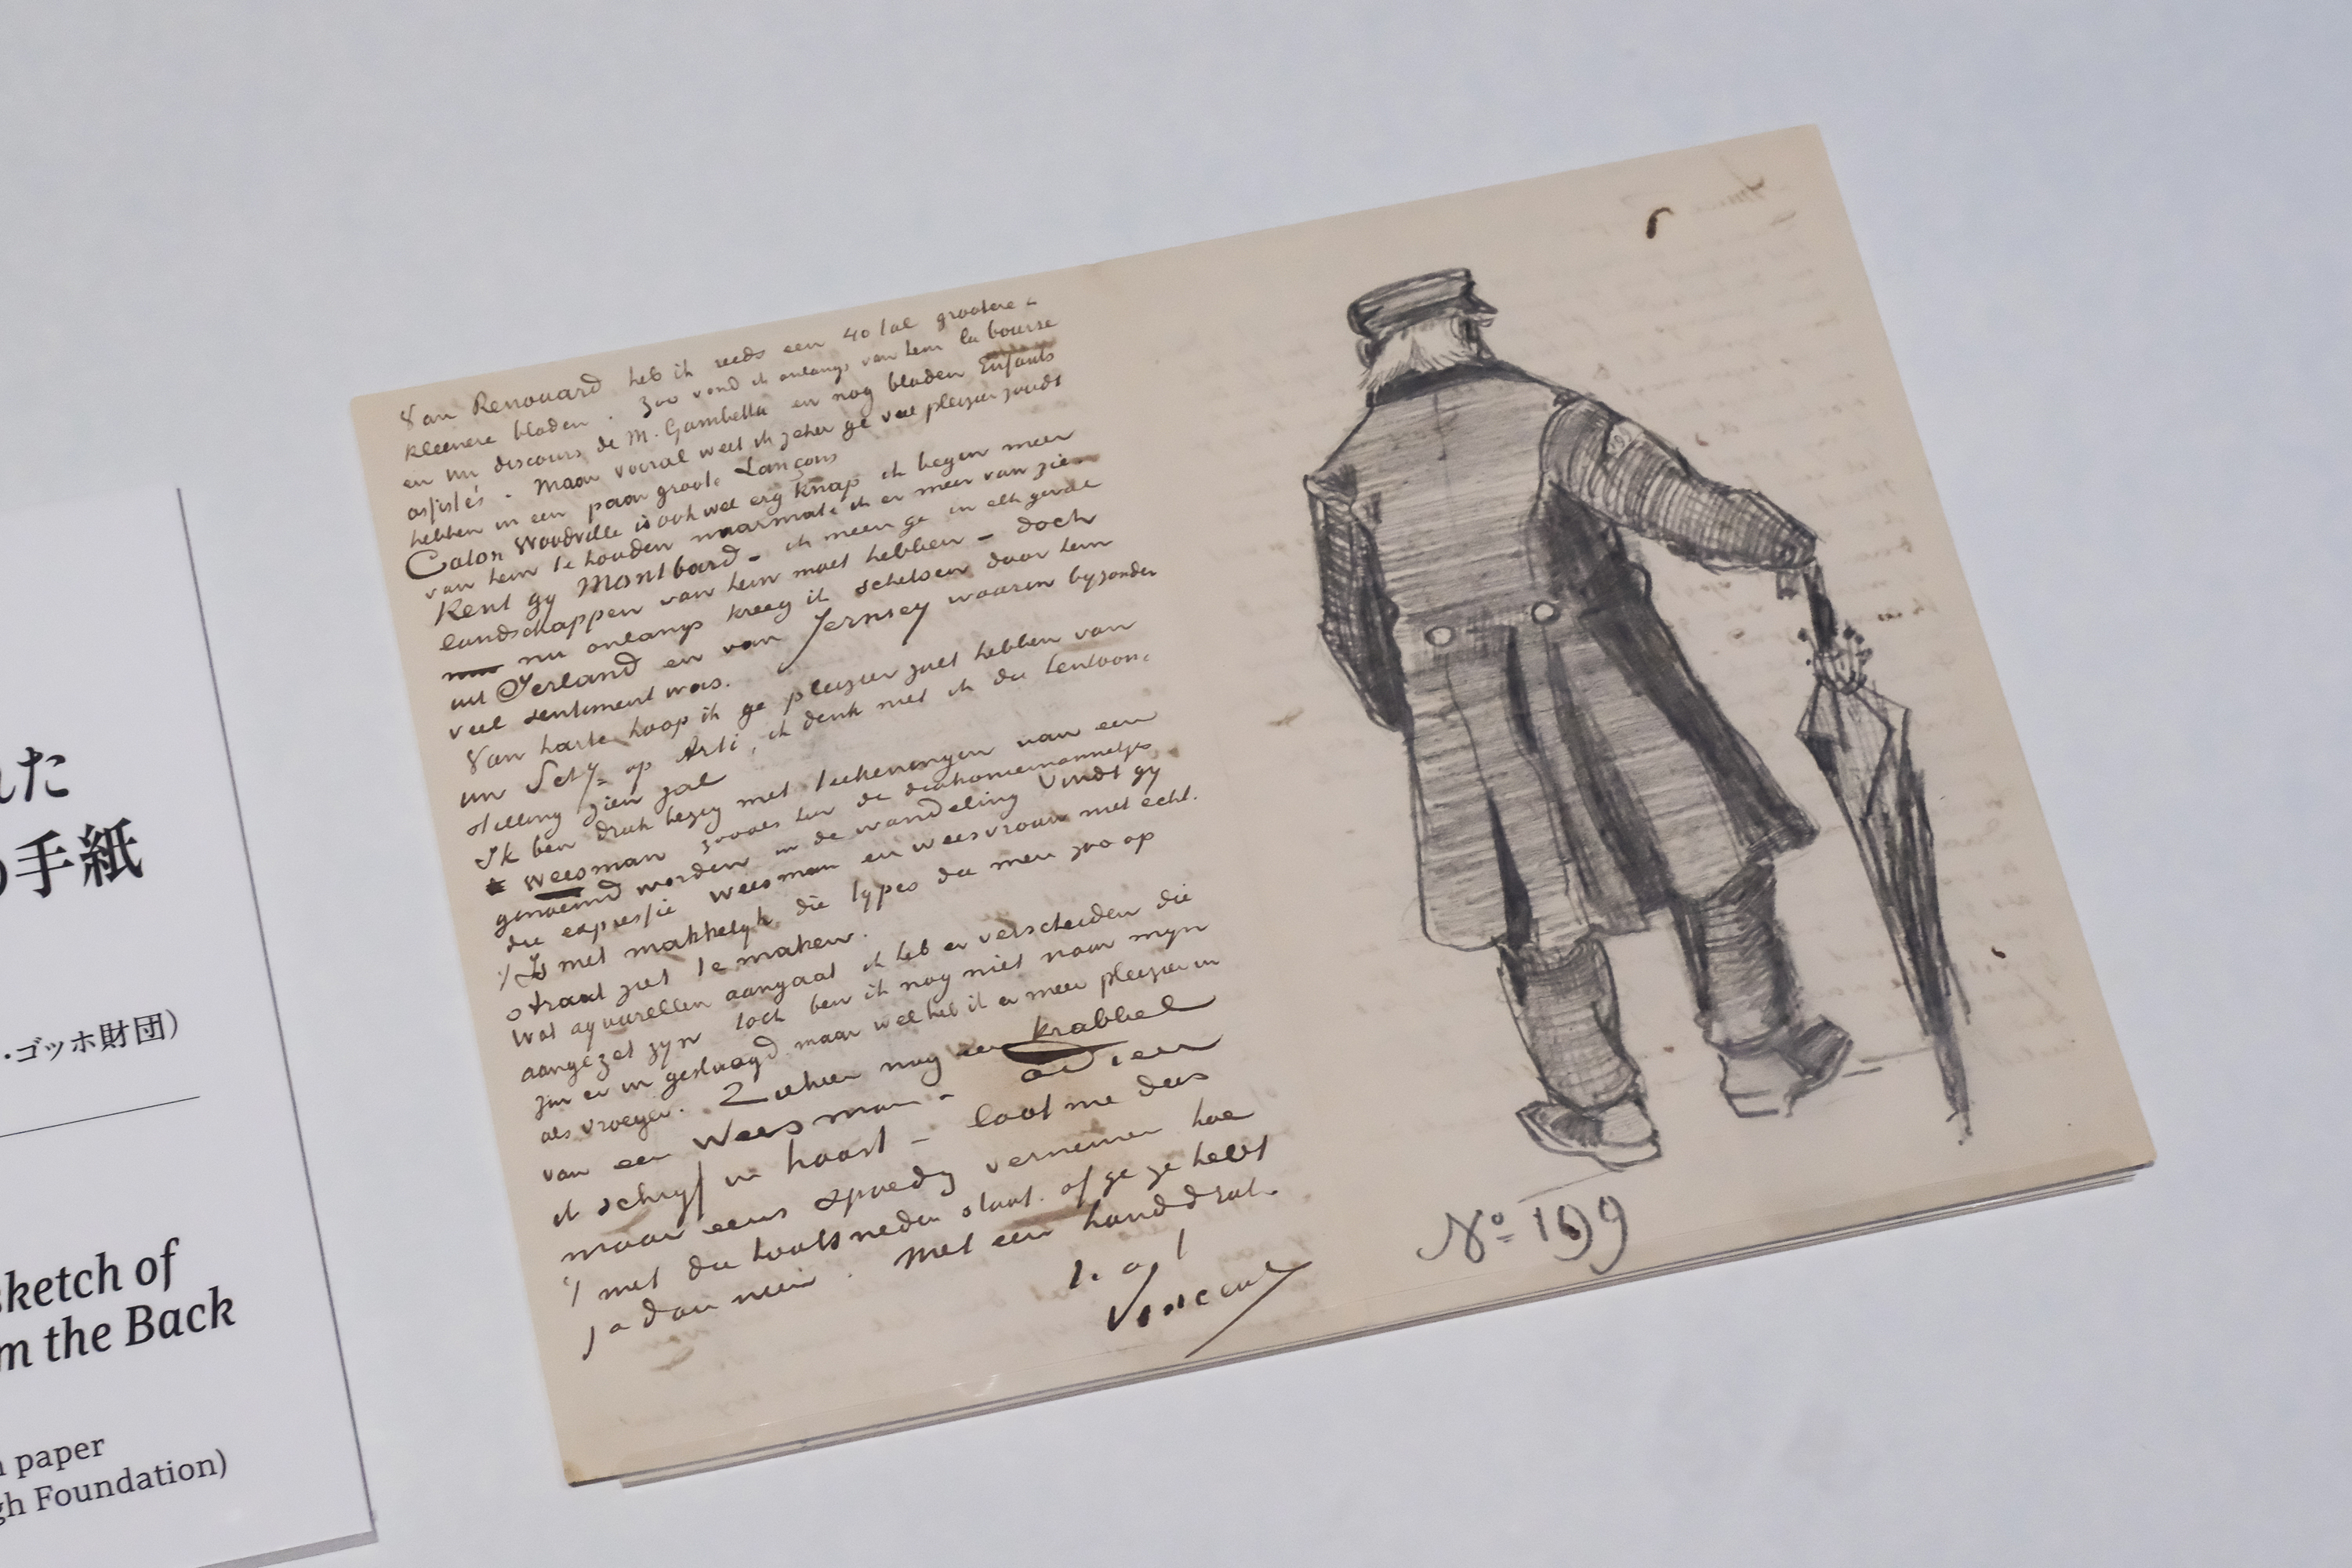 れた
の手紙
・ゴッホ財団)
sketch of
m the Back
n paper
gh Foundation)
Van Renouard heb ik reeds een 40 tal grootere &
kleenere bladen. Zoo vond ik onlangs van hem la bourse
en un discours de M. Gambetta en nog bladen Enfants
assistés. Maar vooral weet ik zeker ge veel pleizier zoudt
hebben in een paar groote Lançons
Caton Woodville is ook wel erg knap ik begin meer
van hem te houden naarmate ik er meer van zie
Kent gy Montbard – ik meen ge in elk geval
landschappen van hem moet hebben – doch
nu onlangs kreeg ik schetsen door hem
uit Ierland en van Jersey waarin byzonder
veel sentiment was.
Van harte hoop ik ge pleizier zult hebben van
un Sety op Arti, ik denk niet ik die tentoon-
stelling zien zal
Ik ben druk bezig met teekeningen van een
weesman zooals hier de diakoniemannetjes
genoemd worden in de wandeling Vindt gy
die expressie weesman en weesvrouw niet echt.
't Is niet makkelyk die types die men zoo op
straat ziet te maken.
Wat aquarellen aangaat ik heb er verscheiden die
aangezet zyn toch ben ik nog niet naar myn
zin er in geslaagd maar wel heb ik er meer pleizier in
als vroeger. Ziehier nog een krabbel
van een Weesman – adieu
ik schryf in haast – laat me dus
maar eens spoedig vernemen hoe
't met die houtsneden staat. of ge ze hebt
ja dan neen. Met een handdruk.
t. à t
Vincent
No 199